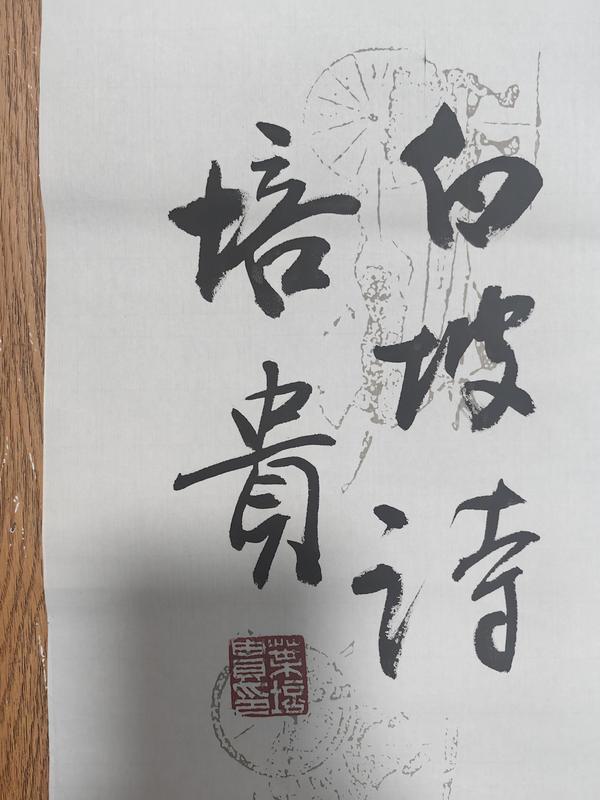 白坡诗
培貴
葉培
貴印